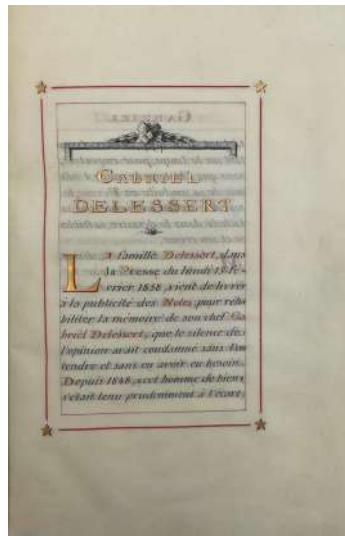 GABRIEL
DELESSERT
La famille Delessert, dans
la Presse du lundi 15 fé-
vrier 1858, vient de livrer
à la publicité des Notes pour réha
biliter la mémoire de son chef Ga
briel Delessert, que le silence de
l'opinion avait condamné sans l'en
tendre et sans en avoir eu besoin.
Depuis 1848, cet homme de bien
s'était tenu prudemment à l'écart,